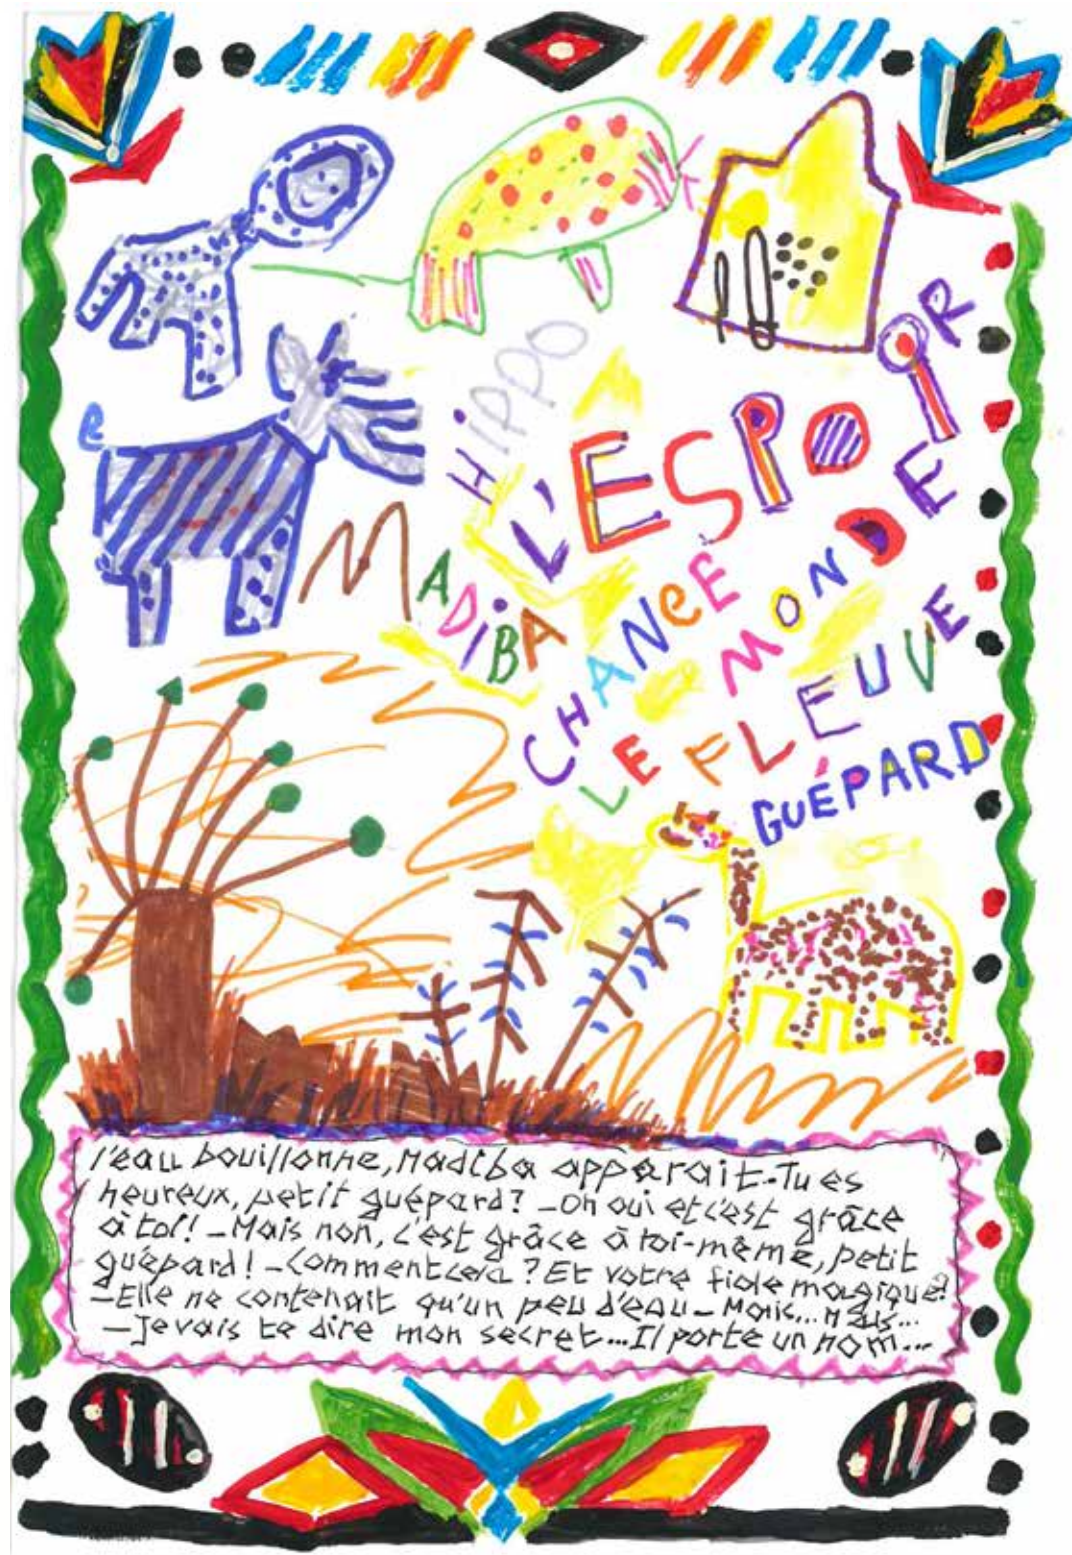 HiPPO
L'ESPOIR
MADIBA
CHANCE
MONDE
LE FLEUVE
GUÉPARD
l'eau bouillonne, Madiba apparait.-Tu es
heureux, petit guépard? -Oh oui et c'est grâce
à toi! -Mais non, c'est grâce à toi-même, petit
guépard! -Comment cela? Et votre fiole magique?
-Elle ne contenait qu'un peu d'eau- Mais... Mais...
-Je vais te dire mon secret...Il porte un nom...